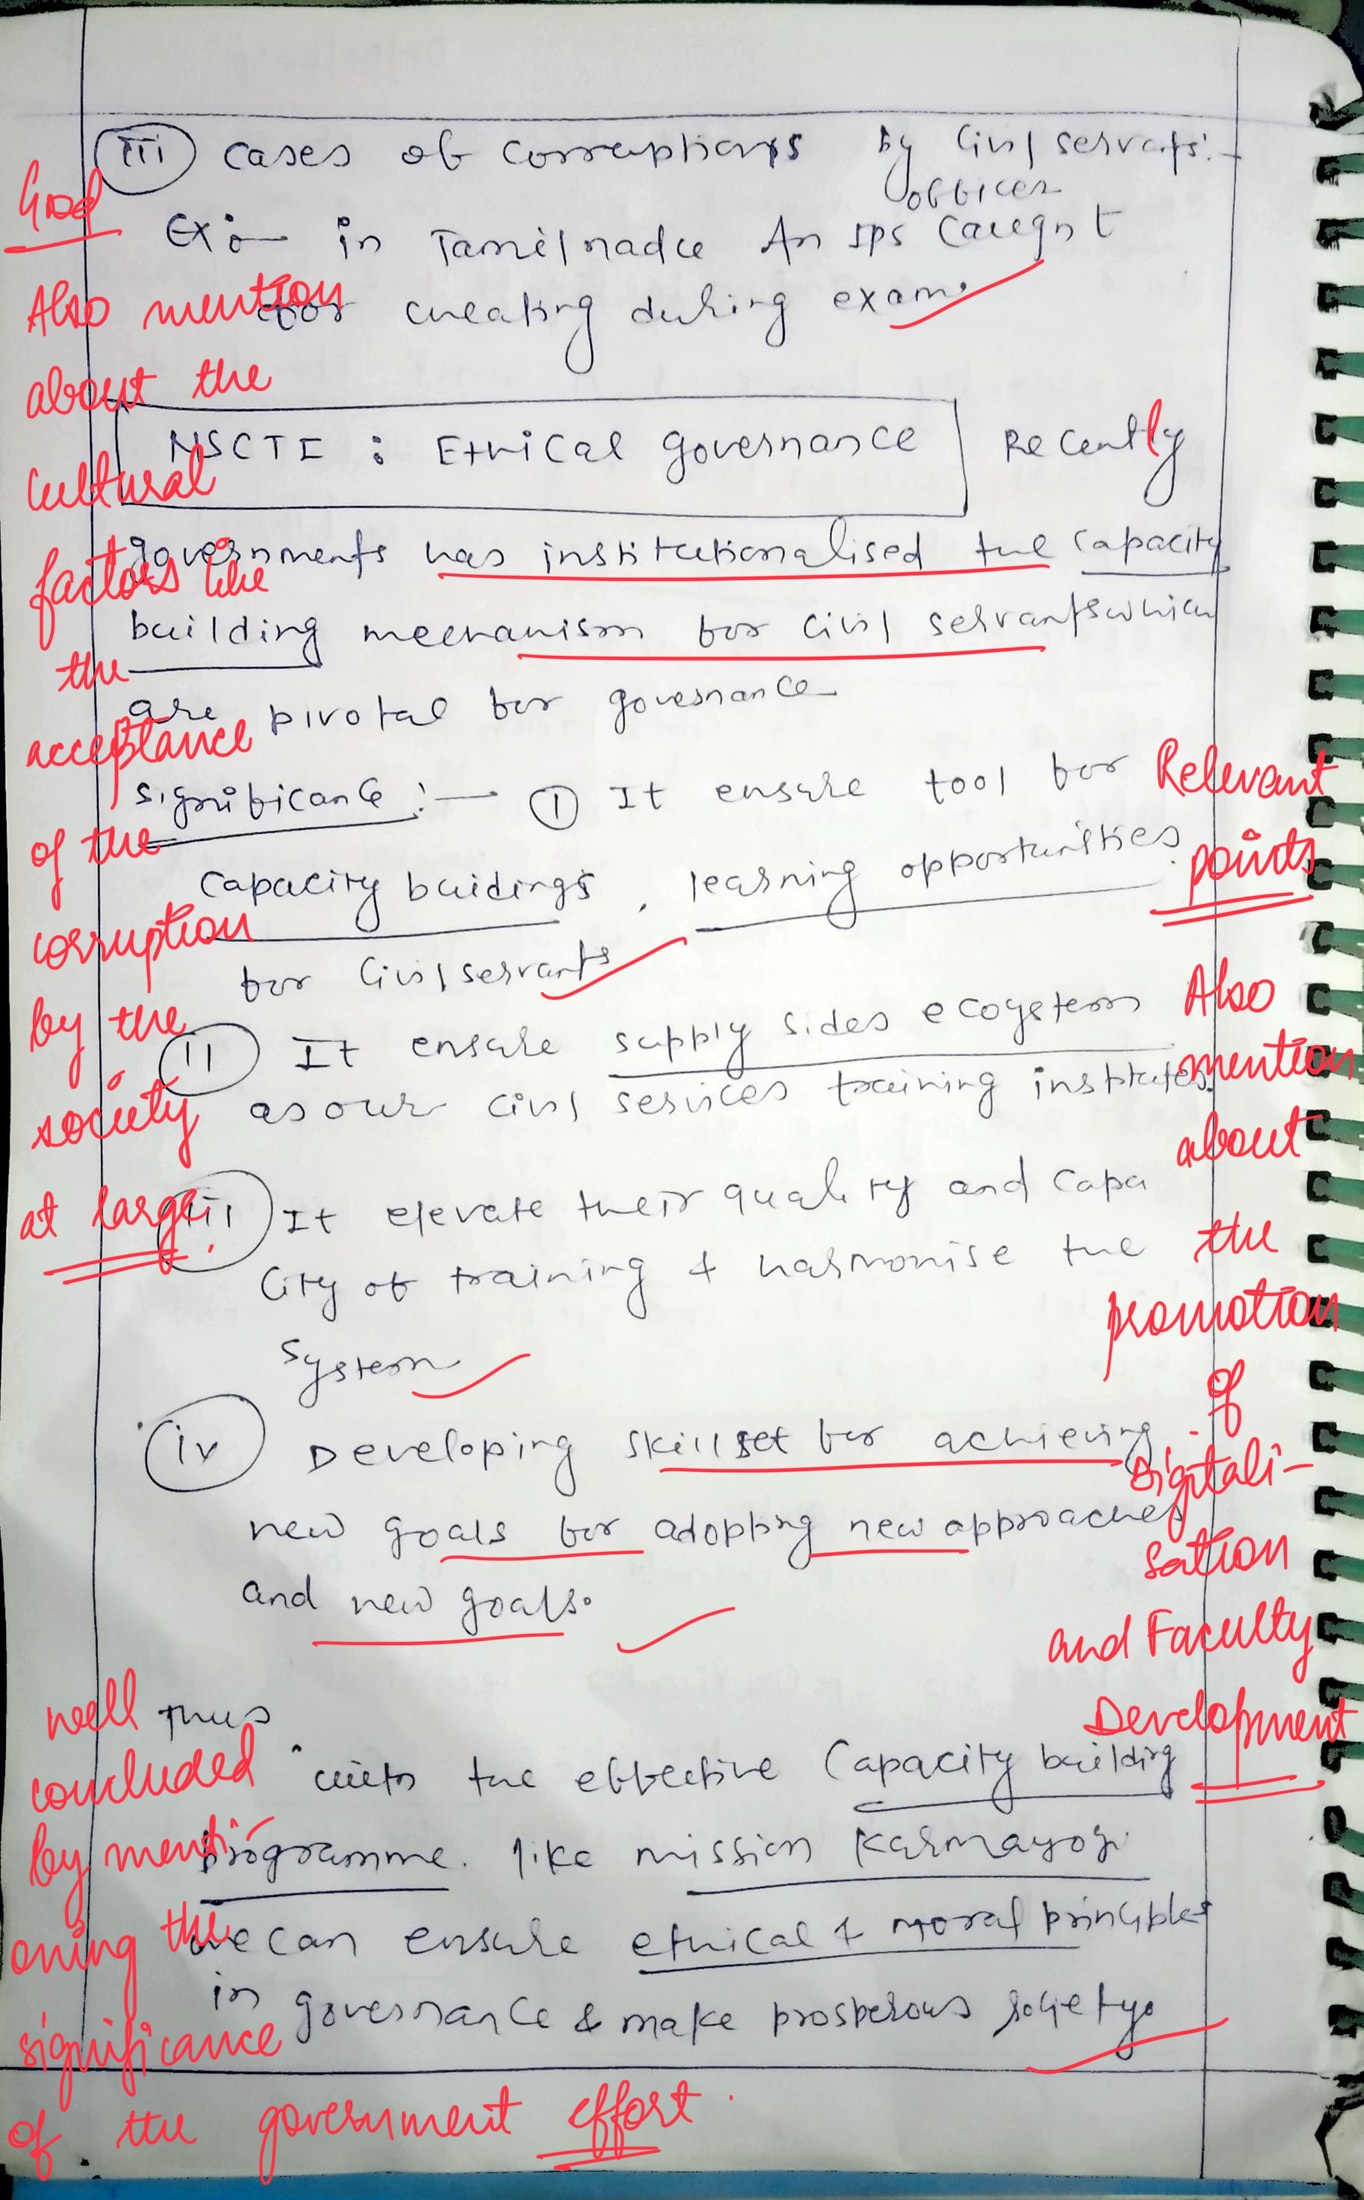 iii cases of corruptions by Civil servants:-
Ex:- in Tamilnadu An IPS officer caught
for cheating during exam.
NSCTI : Ethical governance Recently
governments has institutionalised the capacity
building mechanism for civil servants which
are pivotal for governance
significance :- ① It ensure tool for
capacity buidings, learning opportunities
for Civil servants
ii It ensure supply sides ecoystem
as our civil services training institutes.
iii It elevate their quality and capa
city of training & harmonise the
system
iv Developing skillset for achieving
new goals for adopting new approaches
and new goals.
Thus
with the effective Capacity building
programme. like mission Karmayogi
we can ensure ethical & moral principles
in governance & make prosperous society.
Good
Also mention
about the
cultural
factors like
the
acceptance
of the
corruption
by the
society
at large.
Relevant
points
Also
mention
about
the
promotion
of
Digitali-
sation
and Faculty
Development
well
concluded
by menti-
oning the
significance
of the government effort.